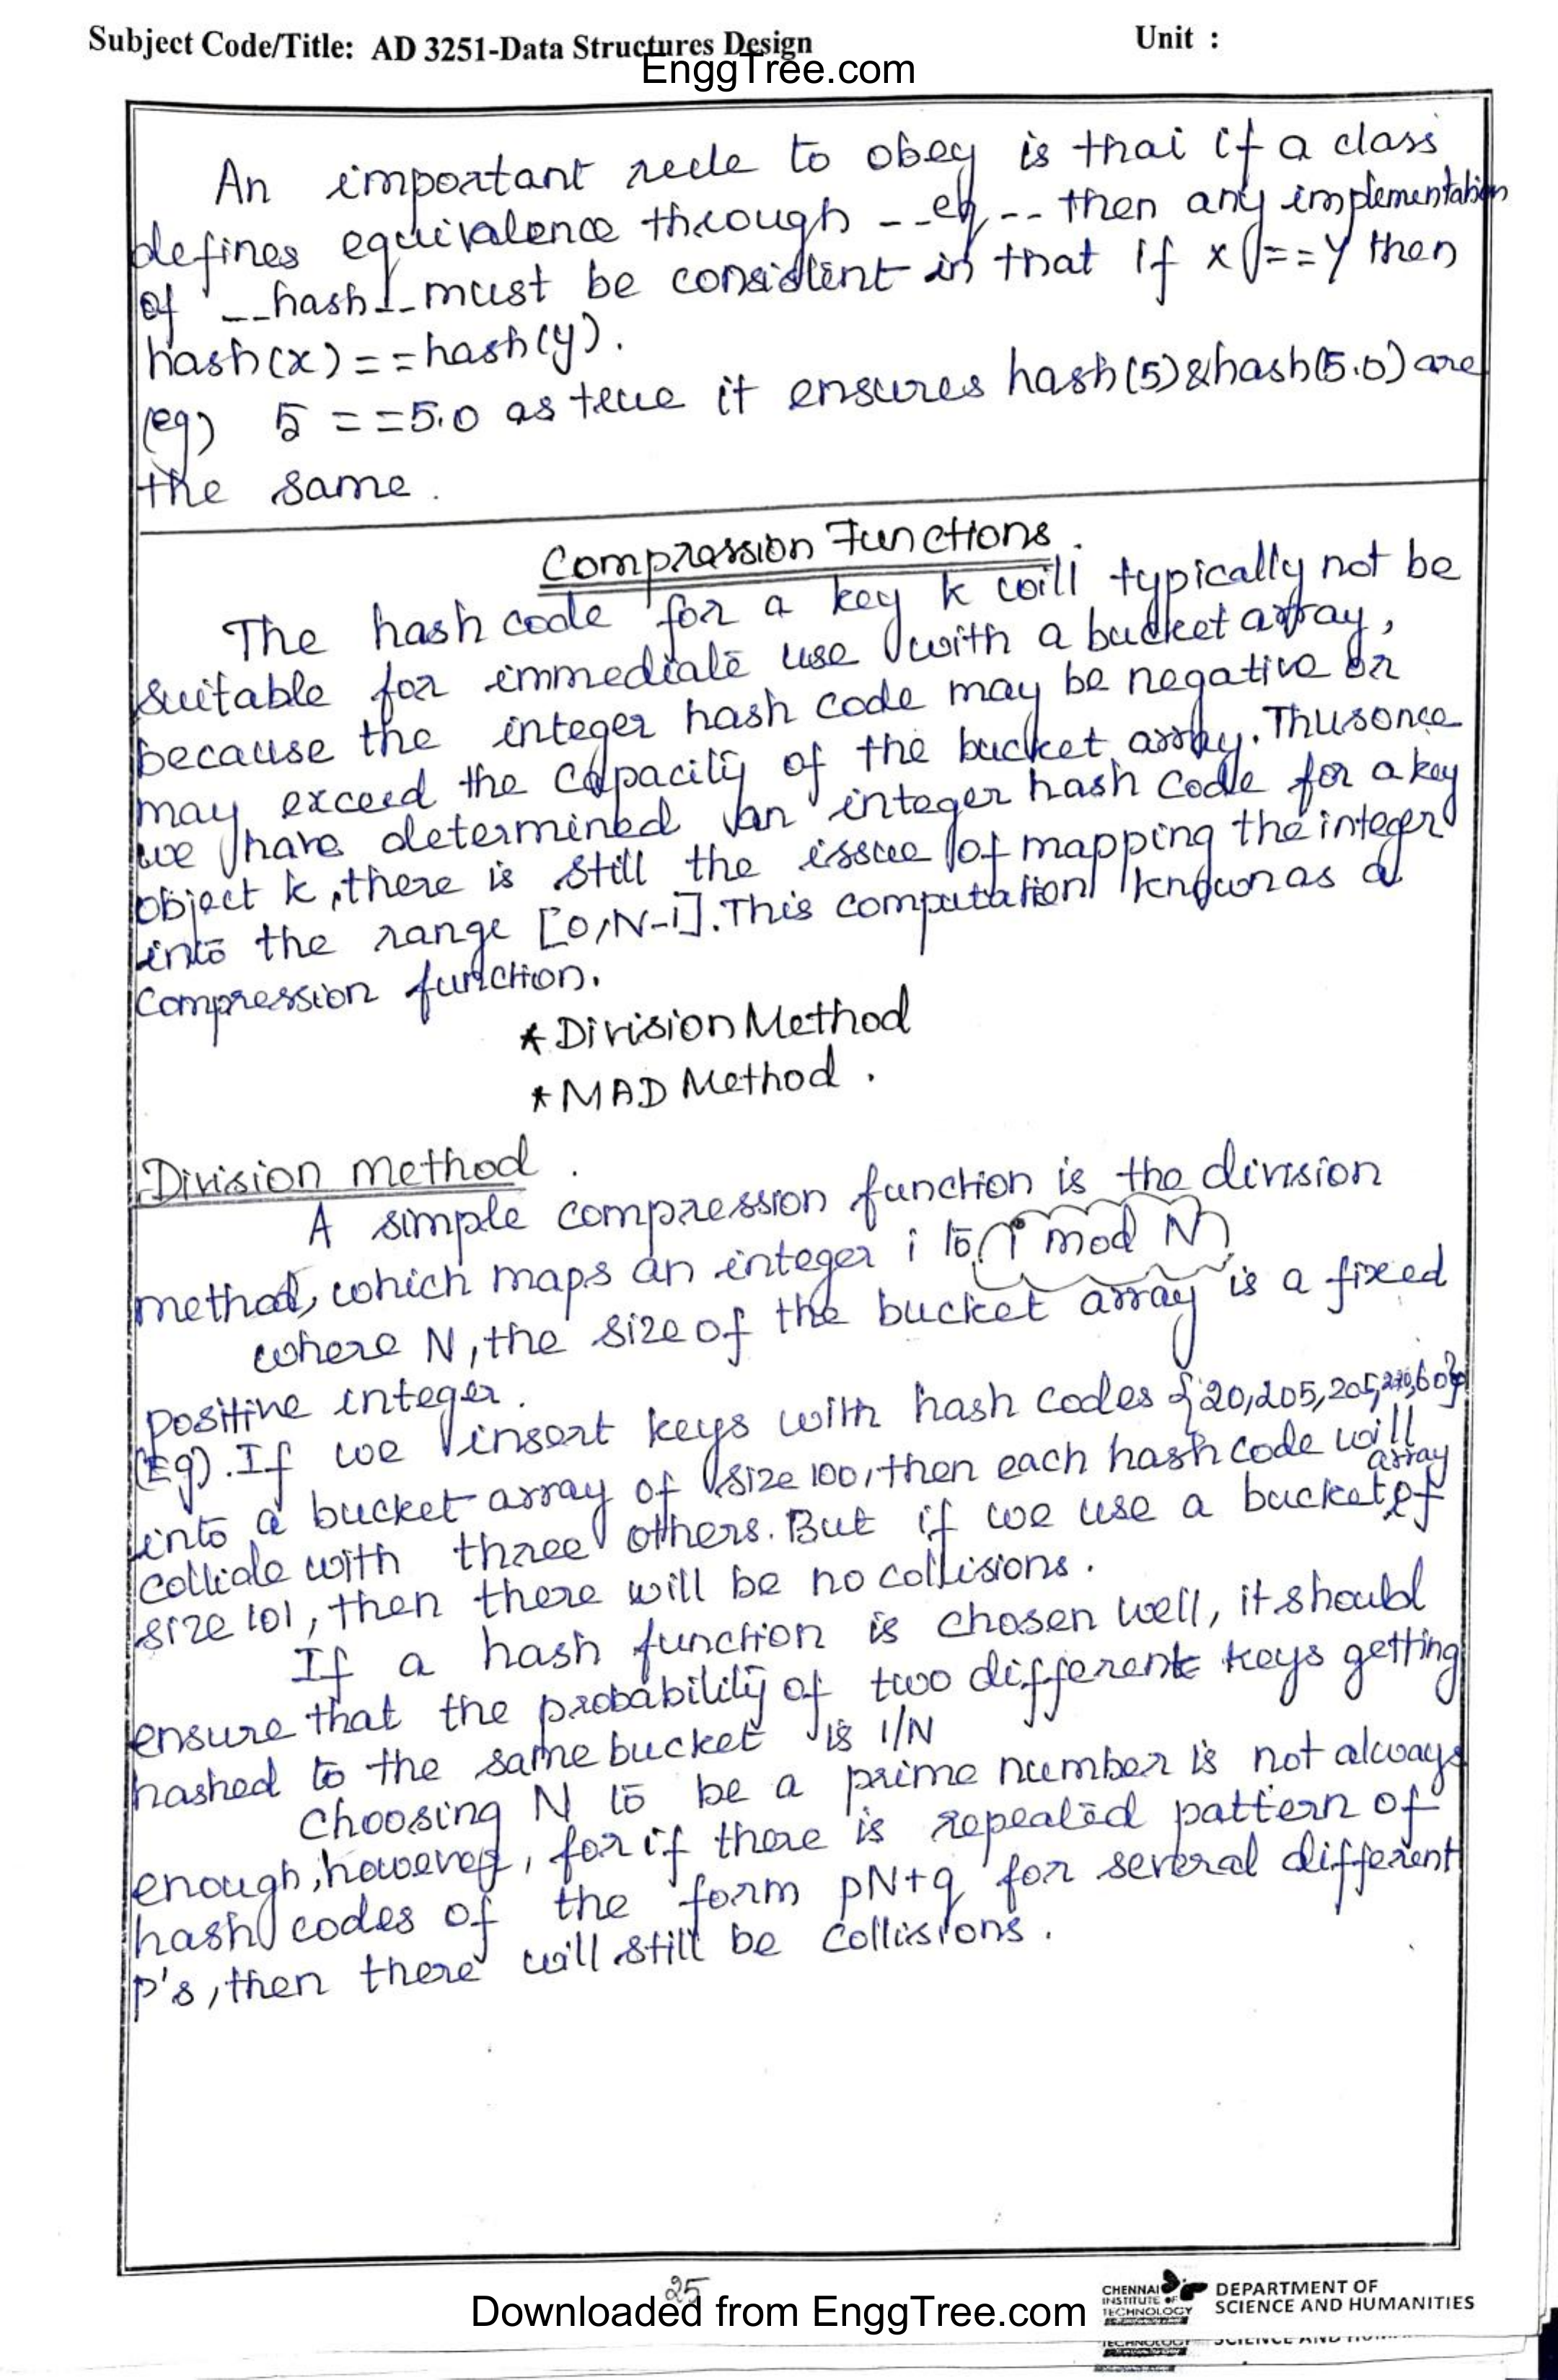 Subject Code/Title: AD 3251-Data Structures Design
Unit :
EnggTree.com
An important rule to obey is that if a class
defines equivalence through __eq__ then any implementation
of __hash__ must be consistent in that if x == y then
hash(x) == hash(y).
(eg) 5 == 5.0 as true it ensures hash(5) & hash(5.0) are
the same.
Compression Functions.
The hash code for a key k will typically not be
suitable for immediate use with a bucket array,
because the integer hash code may be negative or
may exceed the capacity of the bucket array. Thus once
we have determined an integer hash code for a key
object k, there is still the issue of mapping the integer
into the range [0,N-1]. This computation known as a
Compression function.
* Division Method
* MAD Method.
Division method.
A simple compression function is the division
method, which maps an integer i to i mod N
where N, the size of the bucket array is a fixed
positive integer.
(Eg). If we insert keys with hash codes {20,205, 60}
into a bucket array of size 100, then each hash code will
array
collide with three others. But if we use a bucket of
size 101, then there will be no collisions.
If a hash function is chosen well, it should
ensure that the probability of two different keys getting
hashed to the same bucket is 1/N
Choosing N to be a prime number is not always
enough, however, for if there is repeated pattern of
hash codes of the form pN+q for several different
p's, then there will still be collisions.
25
Downloaded from EnggTree.com
CHENNAI
INSTITUTE OF
TECHNOLOGY
DEPARTMENT OF
SCIENCE AND HUMANITIES